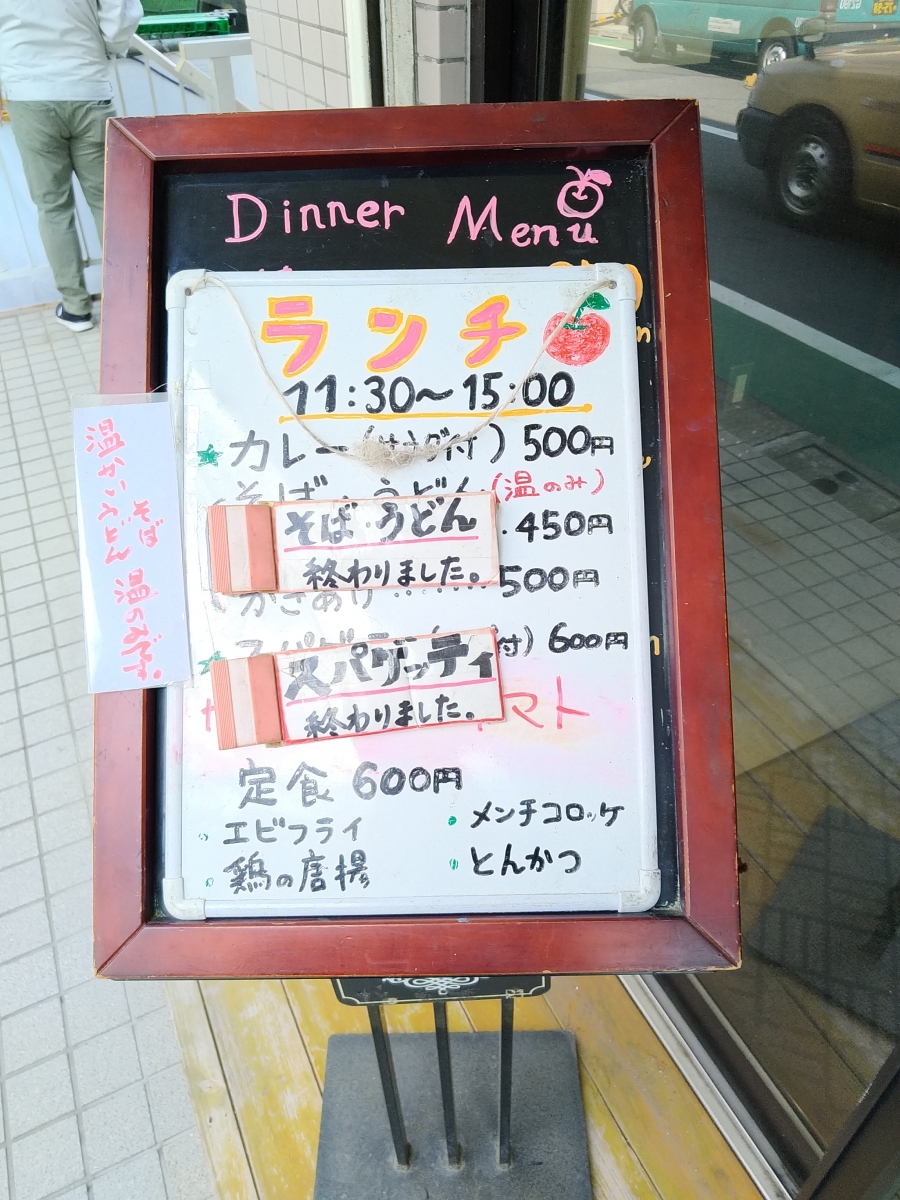 Dinner Menu
ランチ
11:30～15:00
カレー(サラダ付) 500円
そば・うどん(温のみ)
そば・うどん
終わりました。
450円
かきあげ 500円
スパゲッティ
終わりました。
付) 600円
トマト
定食 600円
エビフライ
メンチコロッケ
鶏の唐揚
とんかつ
温かいうどん
そば